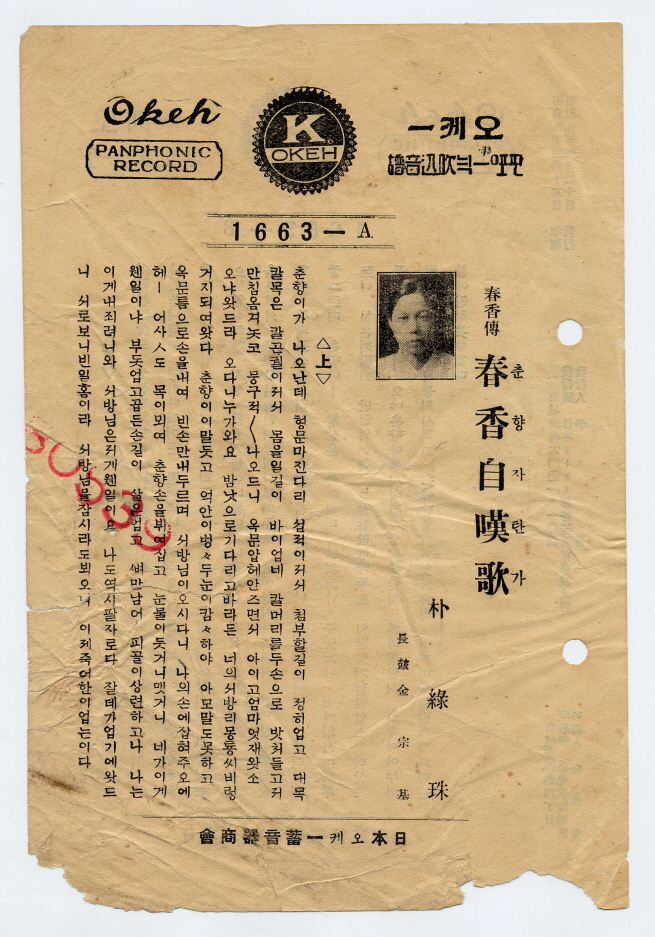 Okeh
PANPHONIC
RECORD
K
OKEH
오케ー
1663—A
春香傳
春香自嘆歌
춘향자탄가
朴綠珠
長鼓金宗基
△上▽
춘향이가 나오난데 형문마진다리 절적이커커 첨부할길이 정히업고 대목
칼목은 칼끈퀄이커커 몸을일길이 바이업네 칼머리를두손으로 밧처들고커
만침옴겨놋코 뭉구적〱나오드니 옥문압헤안즈면서 아이고엄마엇재왓소
오냐왓드라 오다니누가와요 밤낫으로기다리고바라든 너의서방리몽룡씨비렁
거지되여왓다 춘향이이말듯고 억안이벙々두눈이감々하야 아모말도못하고
옥문틈으로손을내여 빈손만내두르며 서방님이오시다니 나의손에잡혀주오에
헤ー 어사人도 목이뫼여 춘향손을뷔여잡고 눈물이듯거니맷거니 네가이게
웬일이냐 부돗업고꼽든손길이 살은업고 뼈만남어 피골이상련하고나 나는
이게내죄려니와 서방님은커게웬일이요 나도역시팔자로다 잘데가업기에왓드
니 서로보니빈일홈이라 서방님을잠시라도뵈오니 이제죽어한이업는이다
日本오케ー蓄音器商會